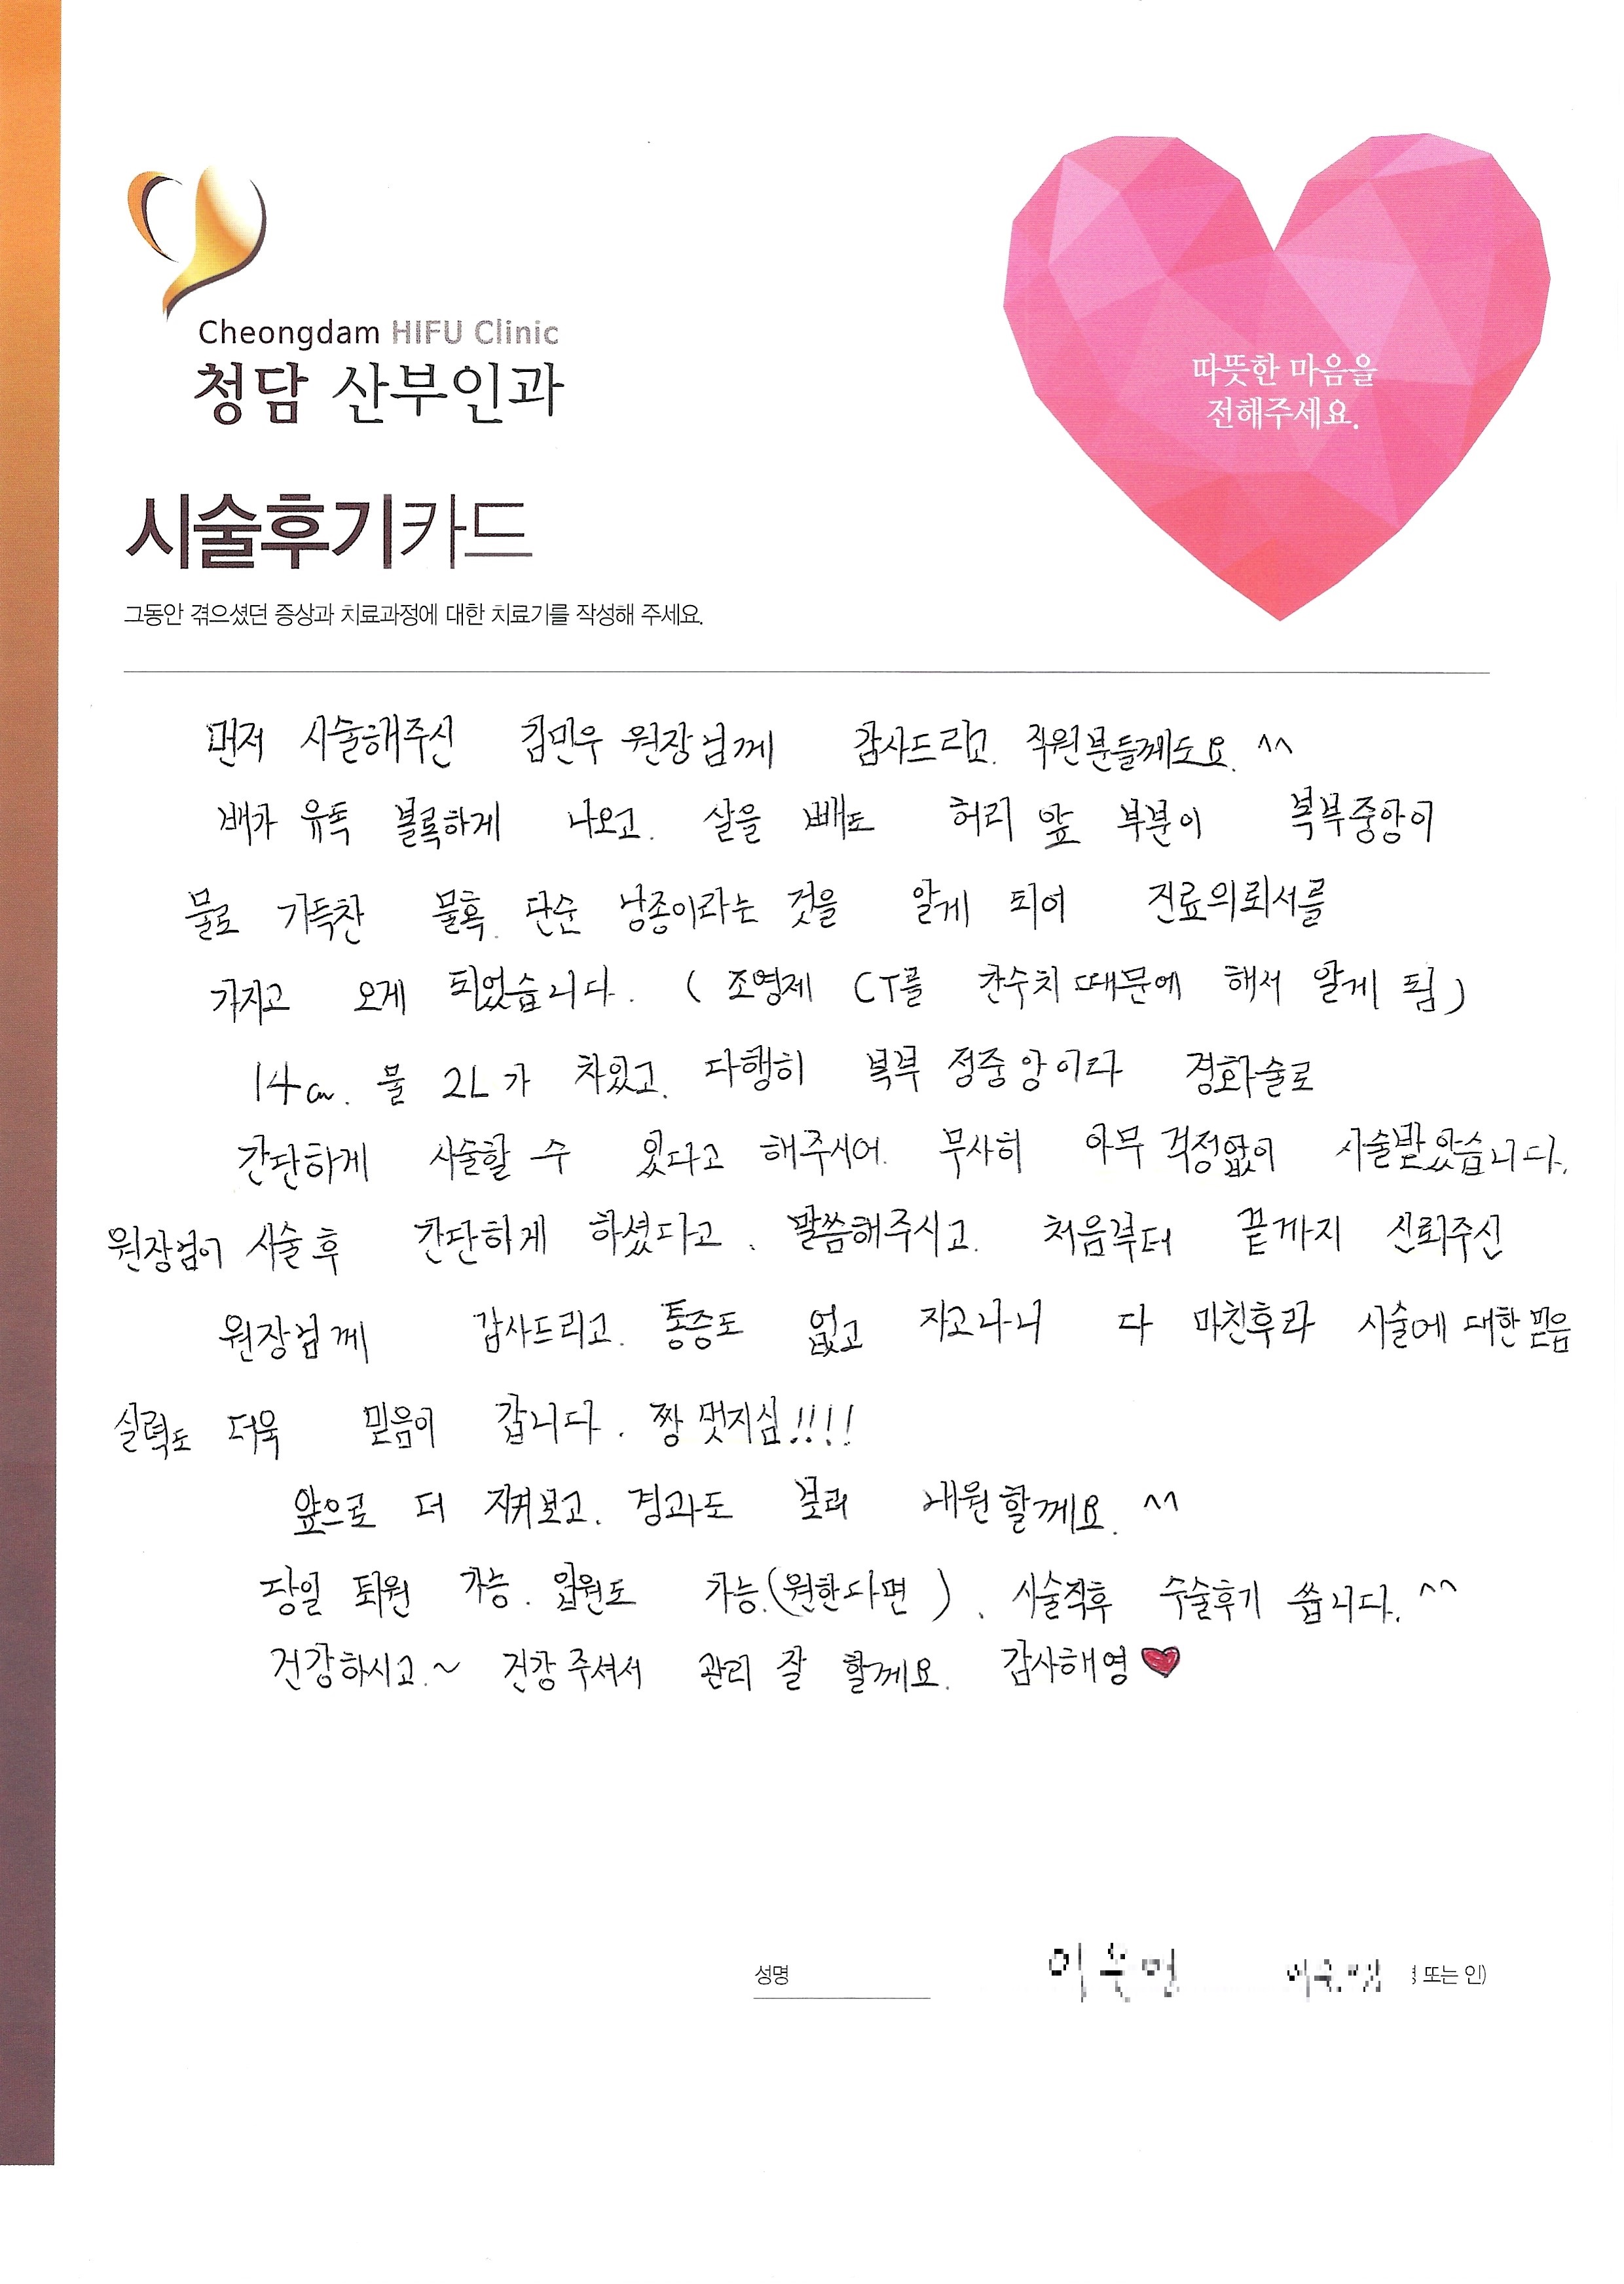 Cheongdam HIFU Clinic
청담 산부인과
따뜻한 마음을
전해주세요.
시술후기카드
그동안 겪으셨던 증상과 치료과정에 대한 치료기를 작성해 주세요.
먼저 시술해주신 김민우 원장님께 감사드리고. 직원분들께도요. ^^
배가 유독 볼록하게 나오고. 살을 빼도 허리 앞 부분이 복부중앙이
물로 가득찬 물혹. 단순 낭종이라는 것을 알게 되어 진료의뢰서를
가지고 오게 되었습니다. ( 조영제 CT를 간수치 때문에 해서 알게 됨 )
14cm. 물 2L가 차있고. 다행히 복부 정중앙이라 경화술로
간단하게 시술할 수 있다고 해주시어. 무사히 아무 걱정없이 시술받았습니다.
원장님이 시술 후 간단하게 하셨다고. 말씀해주시고. 처음부터 끝까지 신뢰주신
원장님께 감사드리고. 통증도 없고 자고나니 다 마친후라 시술에 대한 믿음
실력도 더욱 믿음이 갑니다. 짱 멋지심!!!!
앞으로 더 지켜보고. 경과도 보러 내원할께요. ^^
당일 퇴원 가능. 입원도 가능.(원한다면). 시술직후 수술후기 씁니다. ^^
건강하시고.~ 건강 주셔서 관리 잘 할께요. 감사해영♥
성명 또는 인)